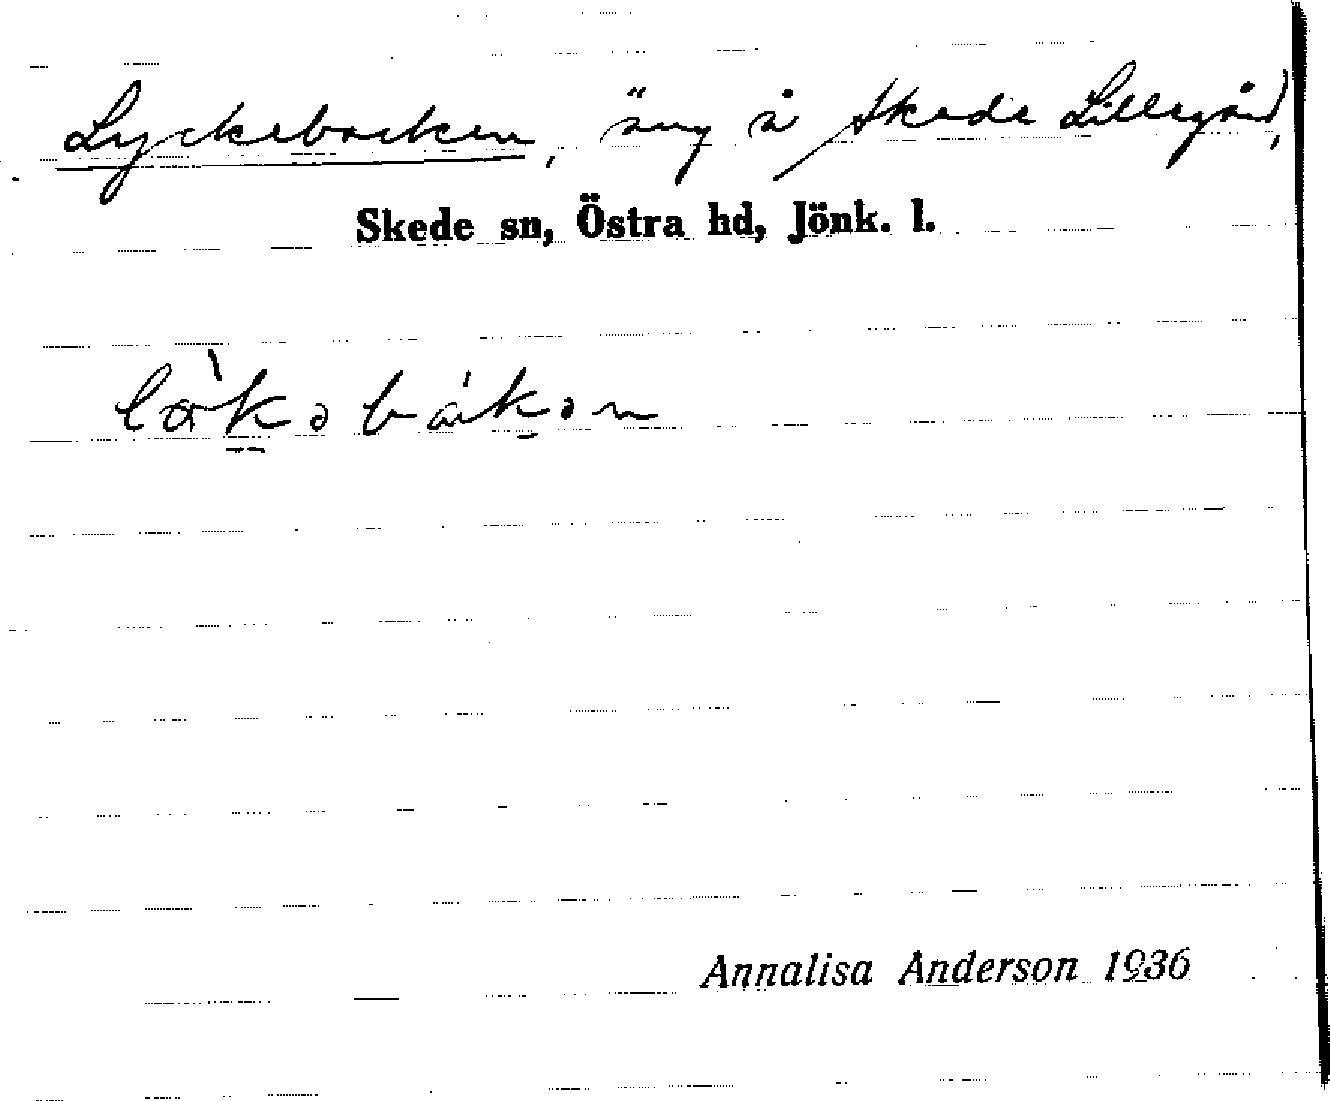 Lyckebacken, äng å Skede Lillegård,
Skede sn, Östra hd, Jönk. l.
Annalisa Anderson 1936